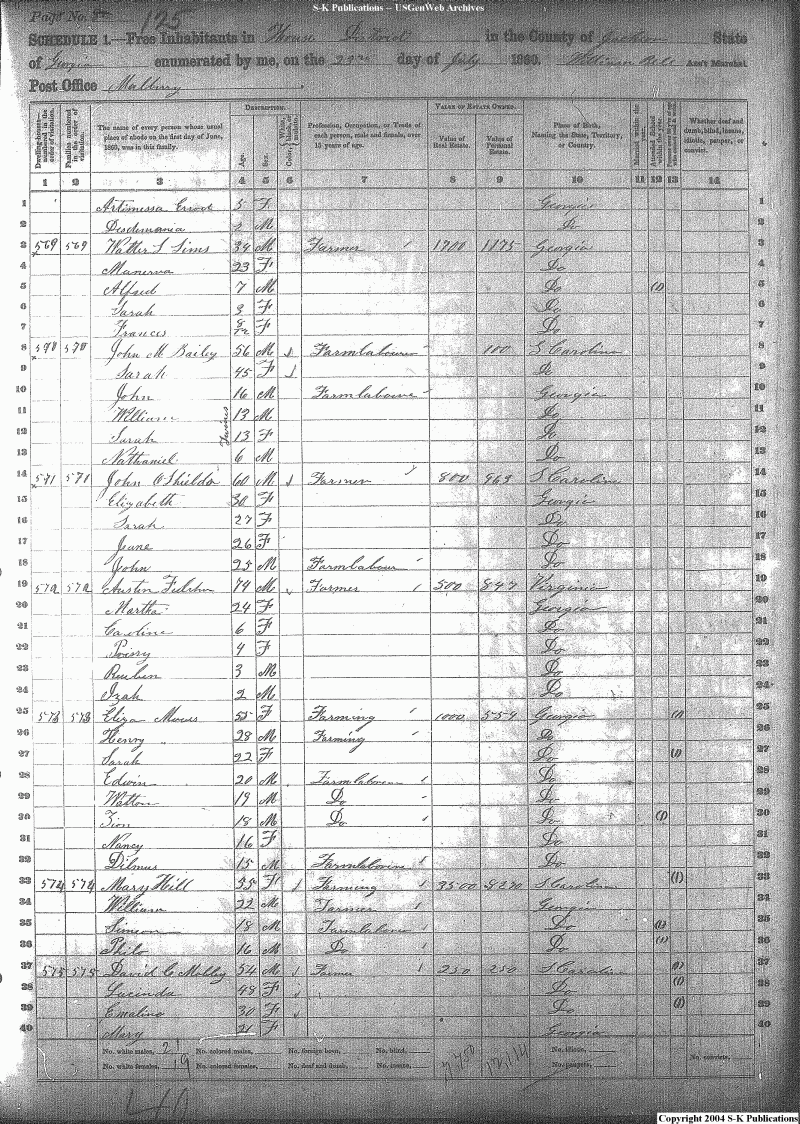 S-K Publications – USGenWeb Archives
Page No. 125
SCHEDULE 1.—Free Inhabitants in House District in the County of Jackson State
of Georgia enumerated by me, on the day of July 1860. William Bell Ass't Marshal
Post Office Mulberry
Dwelling-houses—numbered in the order of visitation.
Families numbered in the order of visitation.
The name of every person whose usual place of abode on the first day of June, 1860, was in this family.
DESCRIPTION.
Age.
Sex.
Color, White, black, or mulatto.
Profession, Occupation, or Trade of each person, male and female, over 15 years of age.
VALUE OF ESTATE OWNED.
Value of Real Estate.
Value of Personal Estate.
Place of Birth, Naming the State, Territory, or Country.
Married within the year.
Attended School within the year.
Whether deaf and dumb, blind, insane, idiotic, pauper, or convict.
1 2 3 4 5 6 7 8 9 10 11 12 13 14
1 Artimessa 5 F Georgia 1
2 Desdemania M Do 2
3 569 569 Walter S Sims 34 M Farmer 1700 1175 Georgia 3
4 Manerva 23 F Do 4
5 Alfred 7 M Do (1) 5
6 Sarah 3 F Do 6
7 Frances 8/12 F Do 7
8 570 570 John M Bailey 56 M Farmlabourer 100 S Carolina 8
9 Sarah 45 F Do 9
10 John 16 M Farmlabourer Georgia 10
11 William 13 M Do 11
Twins
12 Sarah 13 F Do 12
13 Nathaniel 6 M Do 13
14 571 571 John O Shields 60 M Farmer 800 S Carolina 14
15 Elizabeth 30 F Georgia 15
16 Sarah 27 F Do 16
17 Jane 26 F Do 17
18 John 25 M Farmlabour Do 18
19 572 572 Austin 74 M Farmer 500 847 Virginia 19
20 Martha 24 F Georgia 20
21 Caroline 6 F Do 21
22 4 F Do 22
23 Reuben 3 M Do 23
24 Izah 2 M Do 24
25 573 573 Eliza 55 F Farming 1000 559 Georgia (1) 25
26 Henry " 28 M Farming Do 26
27 Sarah 22 F Do (1) 27
28 Edwin 20 M Farmlaborer Do 28
29 Watton 19 M Do Do 29
30 Zion 18 M Do Do (1) 30
31 Nancy 16 F Do 31
32 Dilmus 15 M Farmlaborer Do 32
33 574 574 Mary Hill 55 F Farming 3500 S Carolina (1) 33
34 William 22 M Farmer Georgia 34
35 Simeon 18 M Farmlaborer Do (1) 35
36 Philo 16 M Do Do (1) 36
37 575 575 David C Mobley 54 M Farmer 250 250 S Carolina (1) 37
38 Lucinda 48 F Do (1) 38
39 Emaline 30 F Do (1) 39
40 Mary 21 F Georgia 40
No. white males, 21 No. colored males, No. foreign born, No. blind, No. idiotic, No. convicts,
No. white females, 19 No. colored females, No. deaf and dumb, No. insane, No. paupers,
40
Copyright 2004 S-K Publications